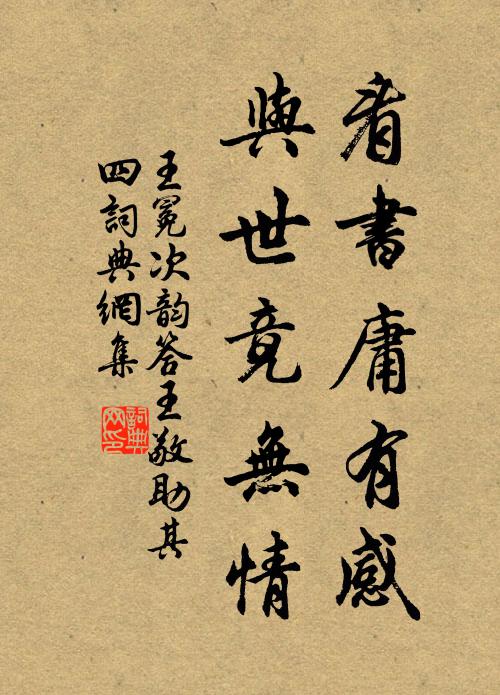 看書庸有感
與世竟無情
王冕次韵答王敬助其
四詞典網集
詞典
网印